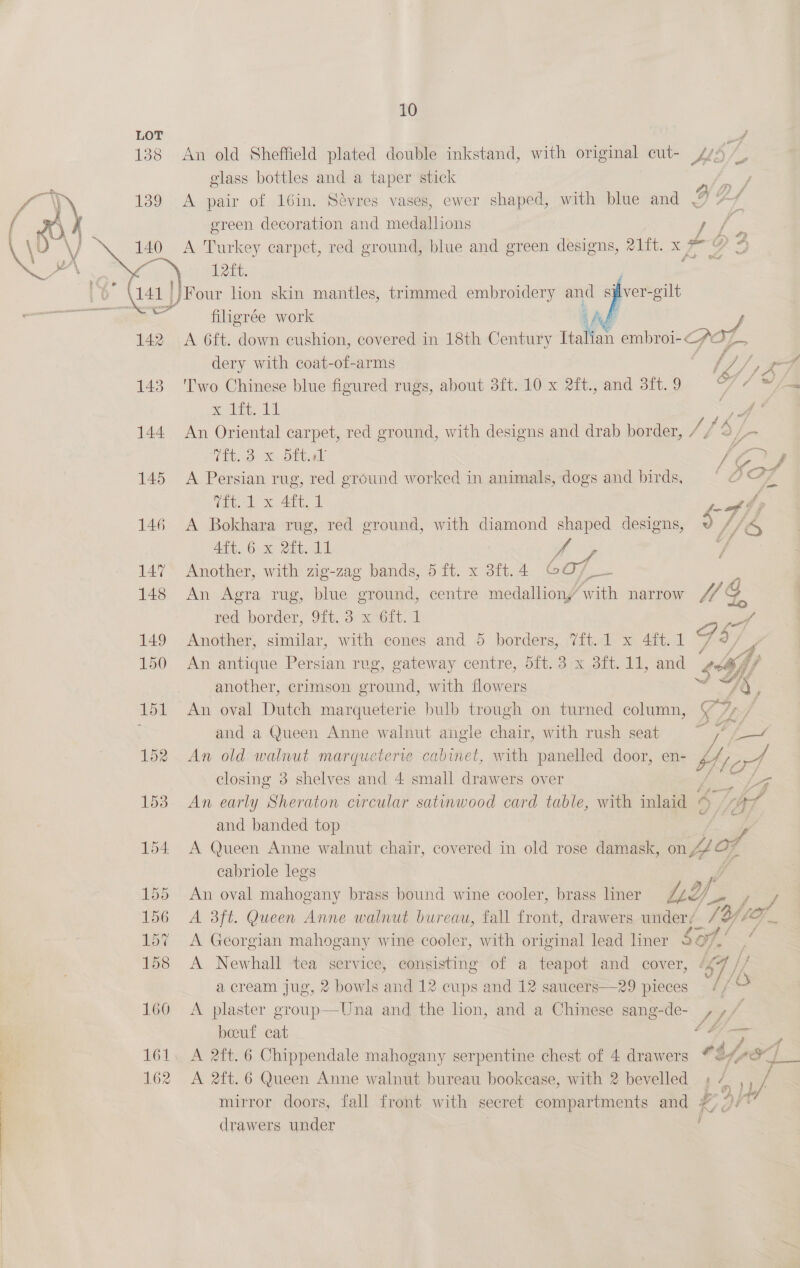 10
LOT
138 An old Sheffield plated double inkstand, with original cut-
glass bottles and a taper stick
139 A pair of 16in. Sèvres vases, ewer shaped, with blue and
green decoration and medallions
140 A Turkey carpet, red ground, blue and green designs, 21ft. x
12ft.
141 Four lion skin mantles, trimmed embroidery and silver-gilt
filigrée work
142 A 6ft. down cushion, covered in 18th Century Italian embroi-
dery with coat-of-arms
143 Two Chinese blue figured rugs, about 3ft. 10 x 2ft., and 3ft. 9
x 1ft. 11
144 An Oriental carpet, red ground, with designs and drab border,
7ft. 3 x 5ft.
145 A Persian rug, red ground worked in animals, dogs and birds,
7ft. 1 x 4ft. 1
146 A Bokhara rug, red ground, with diamond shaped designs,
4ft. 6 x 2ft. 11
147 Another, with zig-zag bands, 5 ft. x 3ft. 4
148 An Agra rug, blue ground, centre medallion, with narrow
red border, 9ft. 3 x 6ft. 1
149 Another, similar, with cones and 5 borders, 7ft. 1 x 4ft. 1
150 An antique Persian rug, gateway centre, 5ft. 3 x 3ft. 11, and
another, crimson ground, with flowers
151 An oval Dutch marqueterie bulb trough on turned column,
and a Queen Anne walnut angle chair, with rush seat
152 An old walnut marqueterie cabinet, with panelled door, en-
closing 3 shelves and 4 small drawers over
153 An early Sheraton circular satinwood card table, with inlaid
and banded top
154 A Queen Anne walnut chair, covered in old rose damask, on
cabriole legs
155 An oval mahogany brass bound wine cooler, brass liner
156 A 3ft. Queen Anne walnut bureau, fall front, drawers under
157 A Georgian mahogany wine cooler, with original lead liner
158 A Newhall tea service, consisting of a teapot and cover,
a cream jug, 2 bowls and 12 cups and 12 saucers—29 pieces
160 A plaster group—Una and the lion, and a Chinese sang-de-
bœuf cat
161 A 2ft. 6 Chippendale mahogany serpentine chest of 4 drawers
162 A 2ft. 6 Queen Anne walnut bureau bookcase, with 2 bevelled
mirror doors, fall front with secret compartments and
drawers under